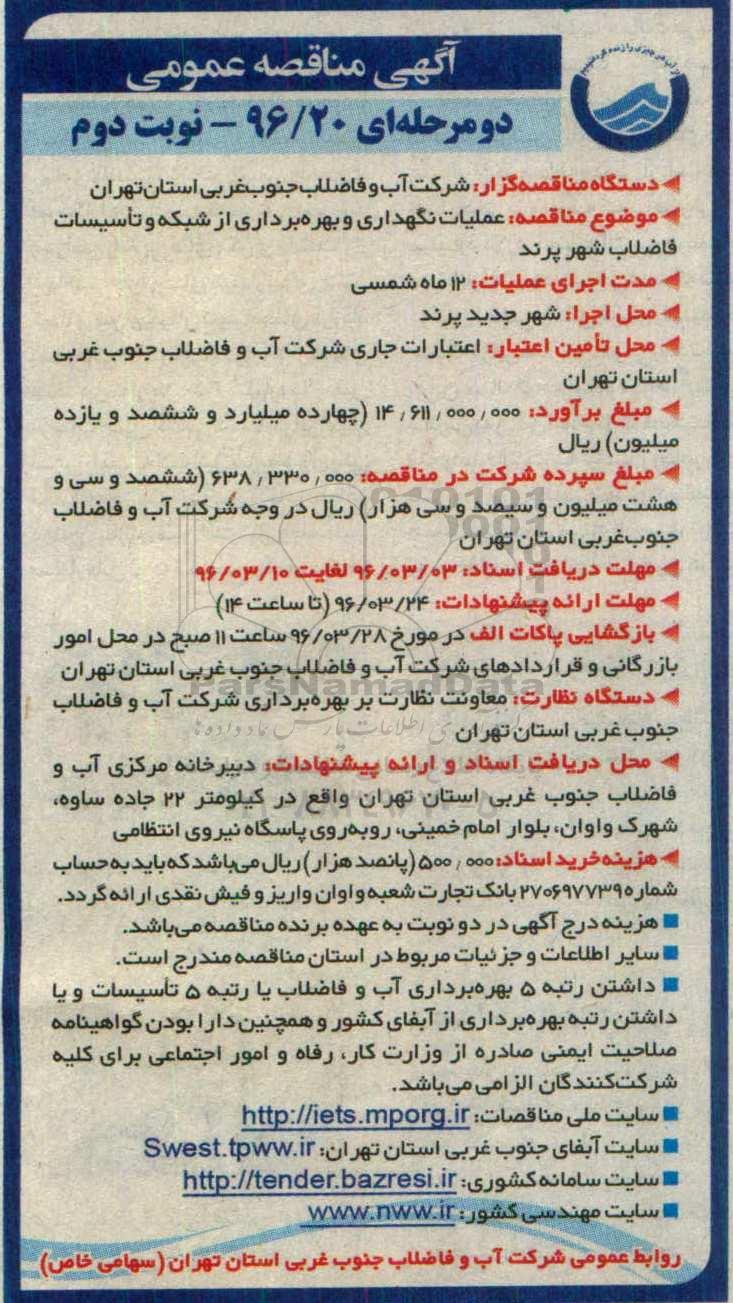 آگهی مناقصه عمومی
دو مرحله‌ای ۹۶/۲۰ – نوبت دوم
دستگاه مناقصه‌گزار: شرکت آب و فاضلاب جنوب‌غربی استان تهران
موضوع مناقصه: عملیات نگهداری و بهره‌برداری از شبکه و تأسیسات
فاضلاب شهر پرند
مدت اجرای عملیات: ۱۲ ماه شمسی
محل اجرا: شهر جدید پرند
محل تأمین اعتبار: اعتبارات جاری شرکت آب و فاضلاب جنوب غربی
استان تهران
مبلغ برآورد: ۱۴٫۶۱۱٫۰۰۰٫۰۰۰ (چهارده میلیارد و ششصد و یازده
میلیون) ریال
مبلغ سپرده شرکت در مناقصه: ۶۳۸٫۳۳۰٫۰۰۰ (ششصد و سی و
هشت میلیون و سیصد و سی هزار) ریال در وجه شرکت آب و فاضلاب
جنوب‌غربی استان تهران
مهلت دریافت اسناد: ۹۶/۰۳/۰۳ لغایت ۹۶/۰۳/۱۰
مهلت ارائه پیشنهادات: ۹۶/۰۳/۲۴ (تا ساعت ۱۴)
بازگشایی پاکات الف در مورخ ۹۶/۰۳/۲۸ ساعت ۱۱ صبح در محل امور
بازرگانی و قراردادهای شرکت آب و فاضلاب جنوب غربی استان تهران
دستگاه نظارت: معاونت نظارت بر بهره‌برداری شرکت آب و فاضلاب
جنوب غربی استان تهران
محل دریافت اسناد و ارائه پیشنهادات: دبیرخانه مرکزی آب و
فاضلاب جنوب غربی استان تهران واقع در کیلومتر ۲۲ جاده ساوه،
شهرک واوان، بلوار امام خمینی، روبه‌روی پاسگاه نیروی انتظامی
هزینه خرید اسناد: ۵۰۰٫۰۰۰ (پانصد هزار) ریال می‌باشد که باید به حساب
شماره ۲۷۰۶۹۷۷۳۹ بانک تجارت شعبه واوان واریز و فیش نقدی ارائه گردد.
هزینه درج آگهی در دو نوبت به عهده برنده مناقصه می‌باشد.
سایر اطلاعات و جزئیات مربوط در استان مناقصه مندرج است.
داشتن رتبه ۵ بهره‌برداری آب و فاضلاب یا رتبه ۵ تأسیسات و یا
داشتن رتبه بهره‌برداری از آبفای کشور و همچنین دارا بودن گواهینامه
صلاحیت ایمنی صادره از وزارت کار، رفاه و امور اجتماعی برای کلیه
شرکت‌کنندگان الزامی می‌باشد.
سایت ملی مناقصات: http://iets.mporg.ir
سایت آبفای جنوب غربی استان تهران: Swest.tpww.ir
سایت سامانه کشوری: http://tender.bazresi.ir
سایت مهندسی کشور: www.nww.ir
روابط عمومی شرکت آب و فاضلاب جنوب غربی استان تهران (سهامی خاص)